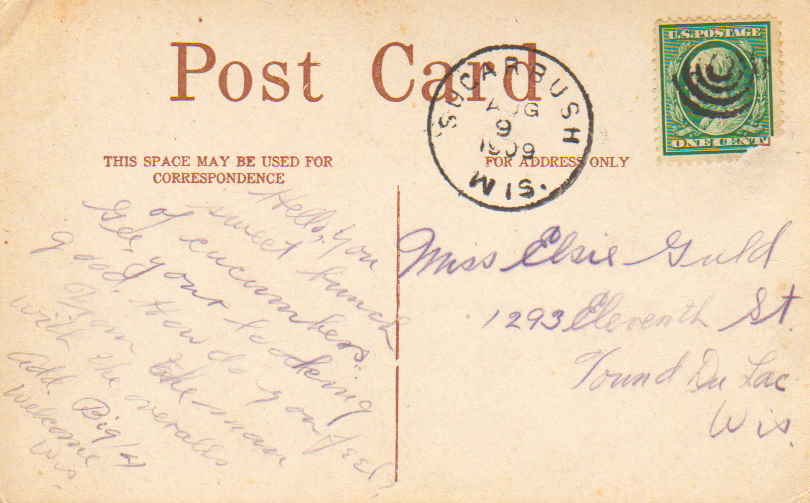 Post Card
U.S. POSTAGE
ONE CENT
SUGARBUSH
AUG
9
1909
WIS.
THIS SPACE MAY BE USED FOR
CORRESPONDENCE
FOR ADDRESS ONLY
Hello, You
of sweet bunch
of cucumbers.
Gee, your looking
good. How do you feel?
From the man
with the overalls
Add. Big
Welcome
Wis.
Miss Elsie Guld
1293 Eleventh St.
Found Du Lac
Wis.